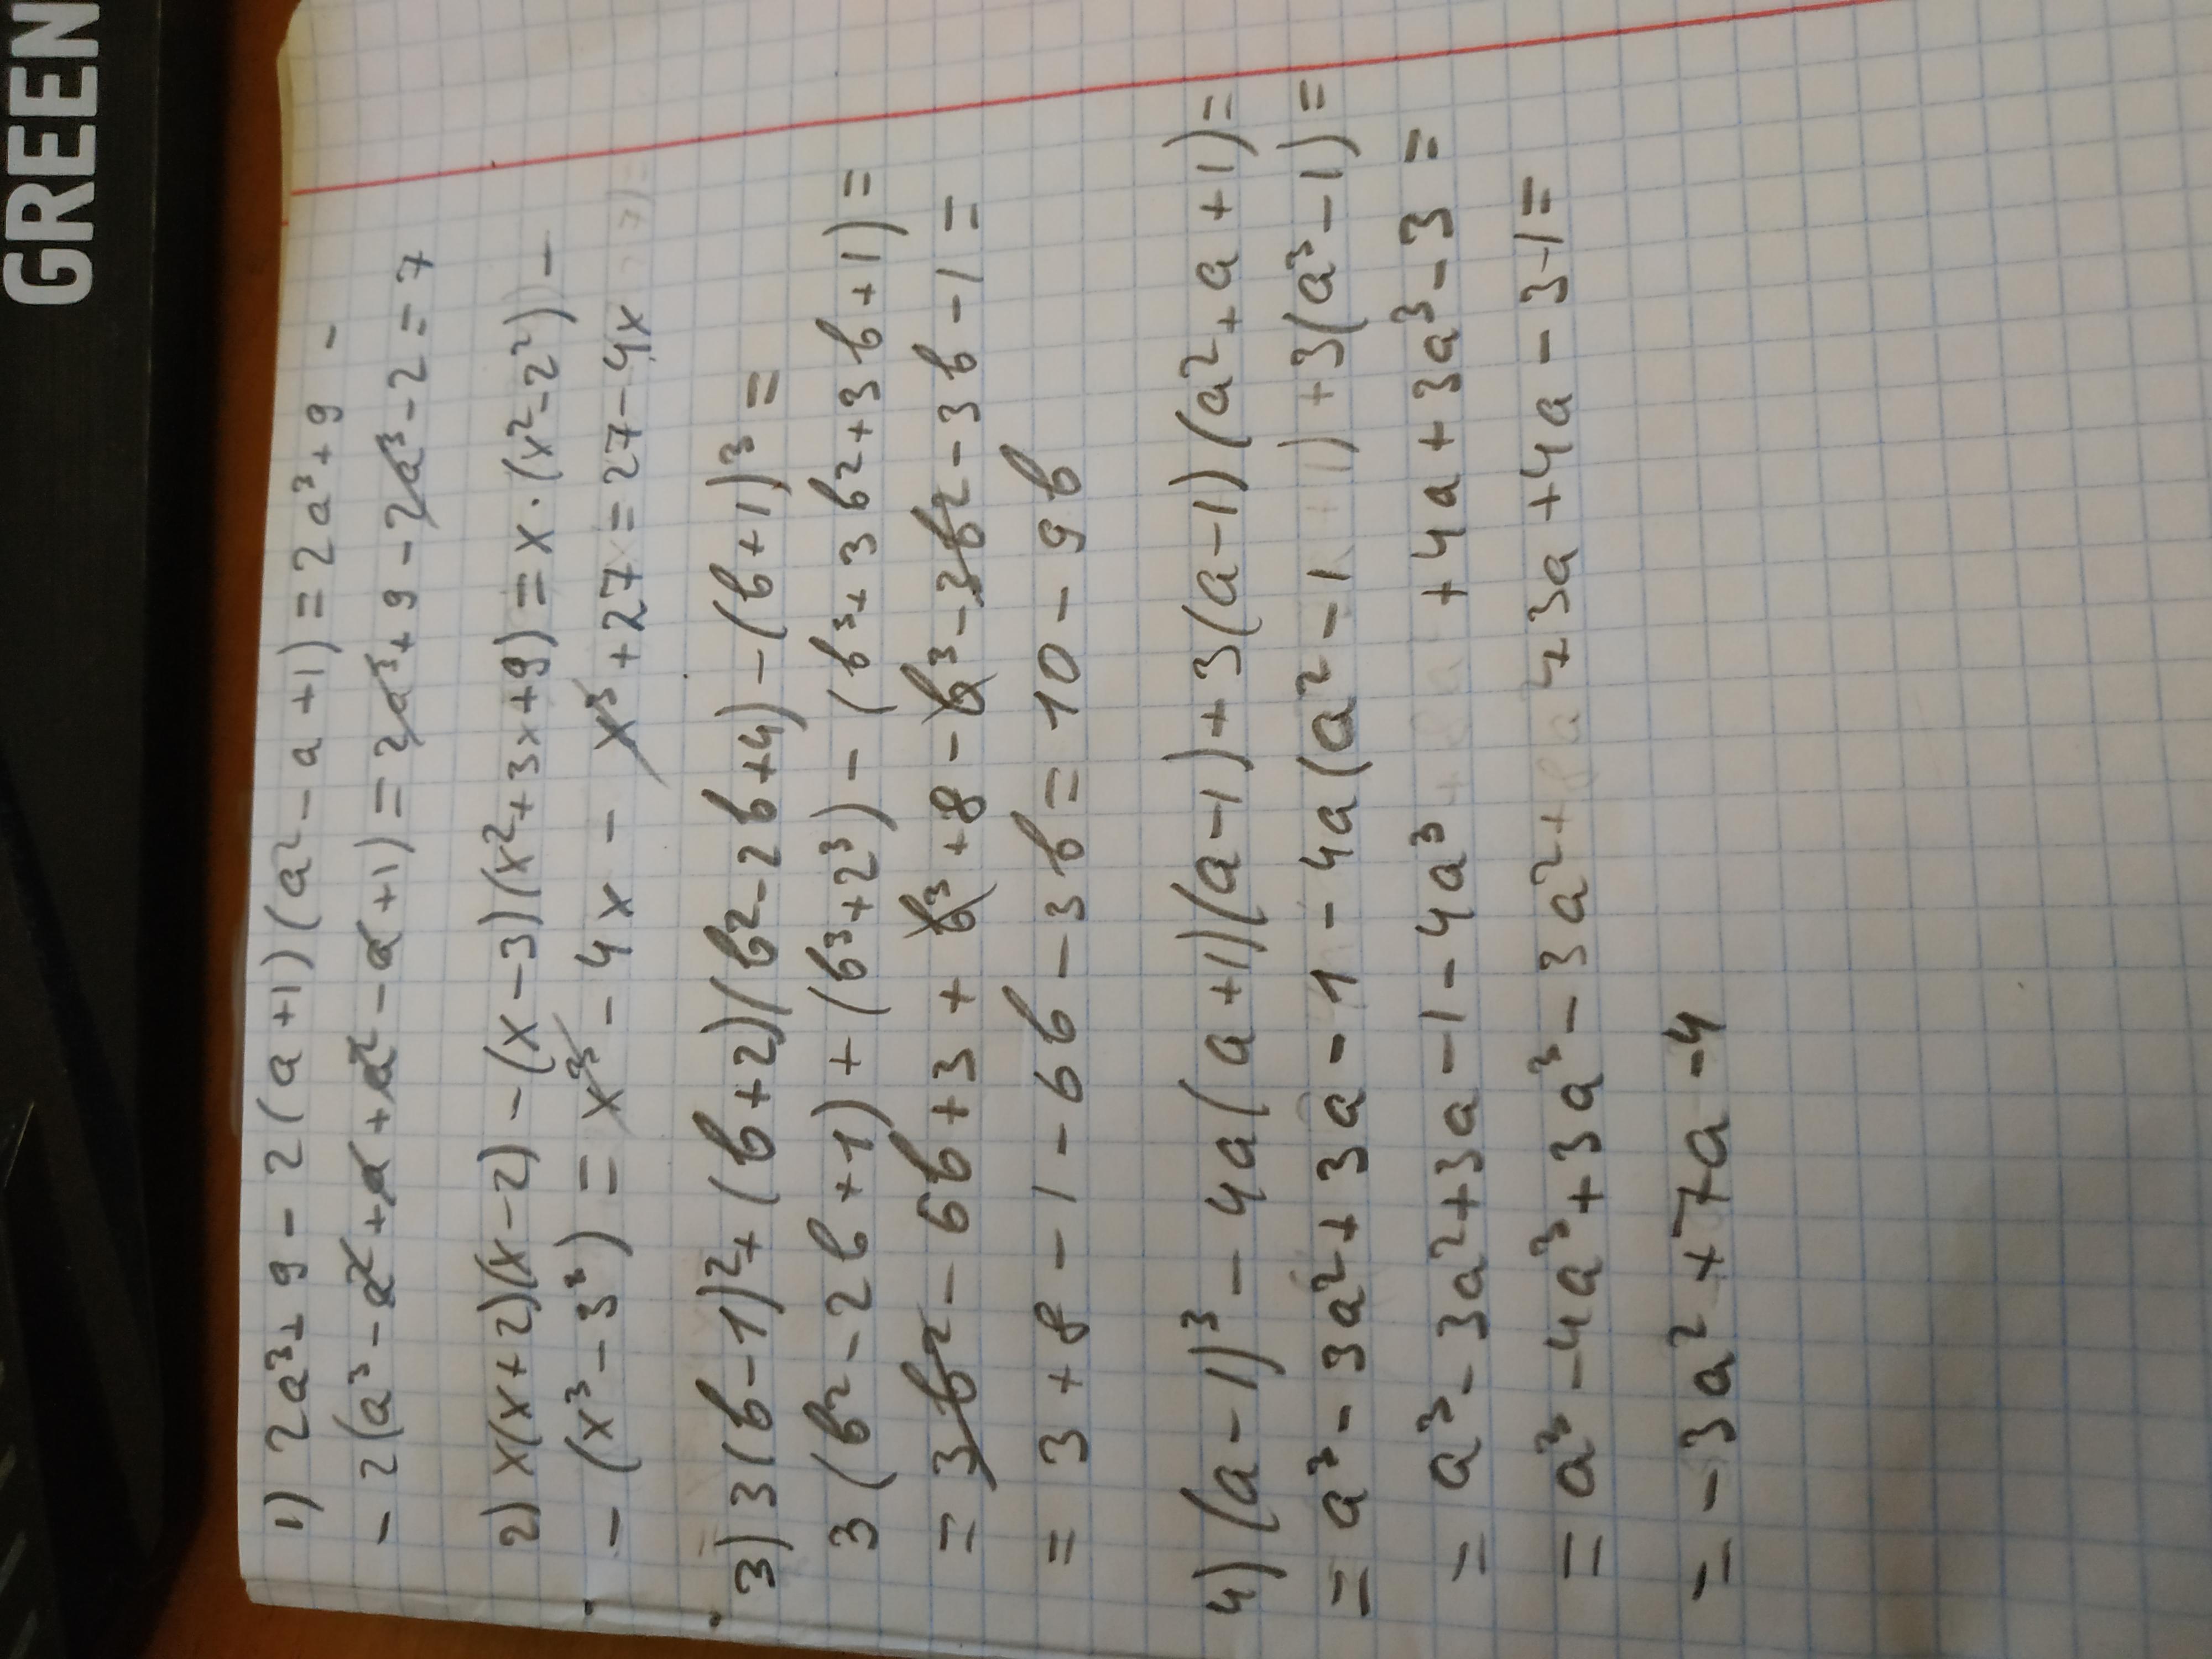 GREEN
1) 2a³+9-2(a+1)(a²-a+1)=2a³+9-
-2(a³-a²+a+a²-a+1)=2a³+9-2a³-2=7
2) x(x+2)(x-2)-(x-3)(x²+3x+9)=x·(x²-2²)-
-(x³-3³)=x³-4x-x³+27=27-4x
3) 3(b-1)²+(b+2)(b²-2b+4)-(b+1)³=
3(b²-2b+1)+(b³+2³)-(b³+3b²+3b+1)=
=3b²-6b+3+b³+8-b³-3b²-3b-1=
=3+8-1-6b-3b=10-9b
4) (a-1)³-4a(a+1)(a-1)+3(a-1)(a²+a+1)=
=a³-3a²+3a-1-4a(a²-1)+3(a³-1)=
=a³-3a²+3a-1-4a³+4a+3a³-3=
=a³-4a³+3a³-3a²+3a+4a-3-1=
=-3a²+7a-4